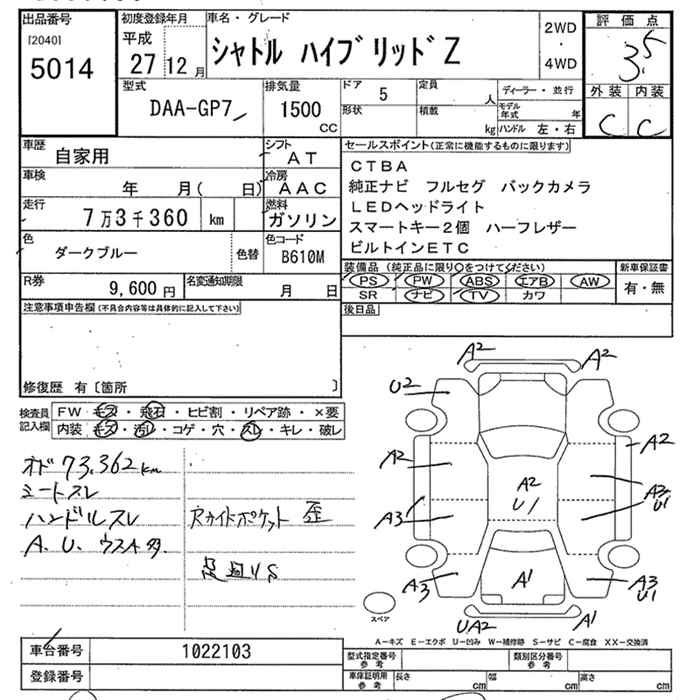 出品番号
[2040]
5014
初度登録年月
平成
27 12 月
車名・グレード
シャトル ハイブリッド Z
2WD
・
4WD
評価点
3.5
外装 内装
C C
型式
DAA-GP7
排気量
1500
CC
ドア
5
定員
人
形状
積載
kg
ディーラー・並行
モデル年式 年
ハンドル 左・右
車歴
自家用
シフト
AT
車検
年 月( 日)
冷房
AAC
走行
7万3千360 km
燃料
ガソリン
色
ダークブルー
色替
色コード
B610M
R券
9,600 円
名変通知期限
月 日
セールスポイント(正常に機能するものに限ります)
CTBA
純正ナビ フルセグ バックカメラ
LEDヘッドライト
スマートキー2個 ハーフレザー
ビルトインETC
装備品(純正品に限り○をつけてください)
PS PW ABS エアB AW
SR ナビ TV カワ
新車保証書
有・無
後日品
注意事項申告欄(不具合内容等は具体的に記入して下さい)
修復歴 有〔箇所 〕
検査員記入欄
FW キズ・飛石・ヒビ割・リペア跡・×要
内装 キズ・汚レ・コゲ・穴・スレ・キレ・破レ
オド 73,362km
シートスレ
ハンドルスレ
A.U.ウスキ多
足回りS
A2 A2
U2
A2
A2
A2
U1
A3
U1
A3
A3
A1
A3
U1
UA2
A1
スペア
A-キズ E-エクボ U-凹み W-補修跡 S-サビ C-腐食 XX-交換済
車台番号
1022103
登録番号
型式指定番号
参考
類別区分番号
参考
車庫証明用
参考
長さ cm
幅 cm
高さ cm